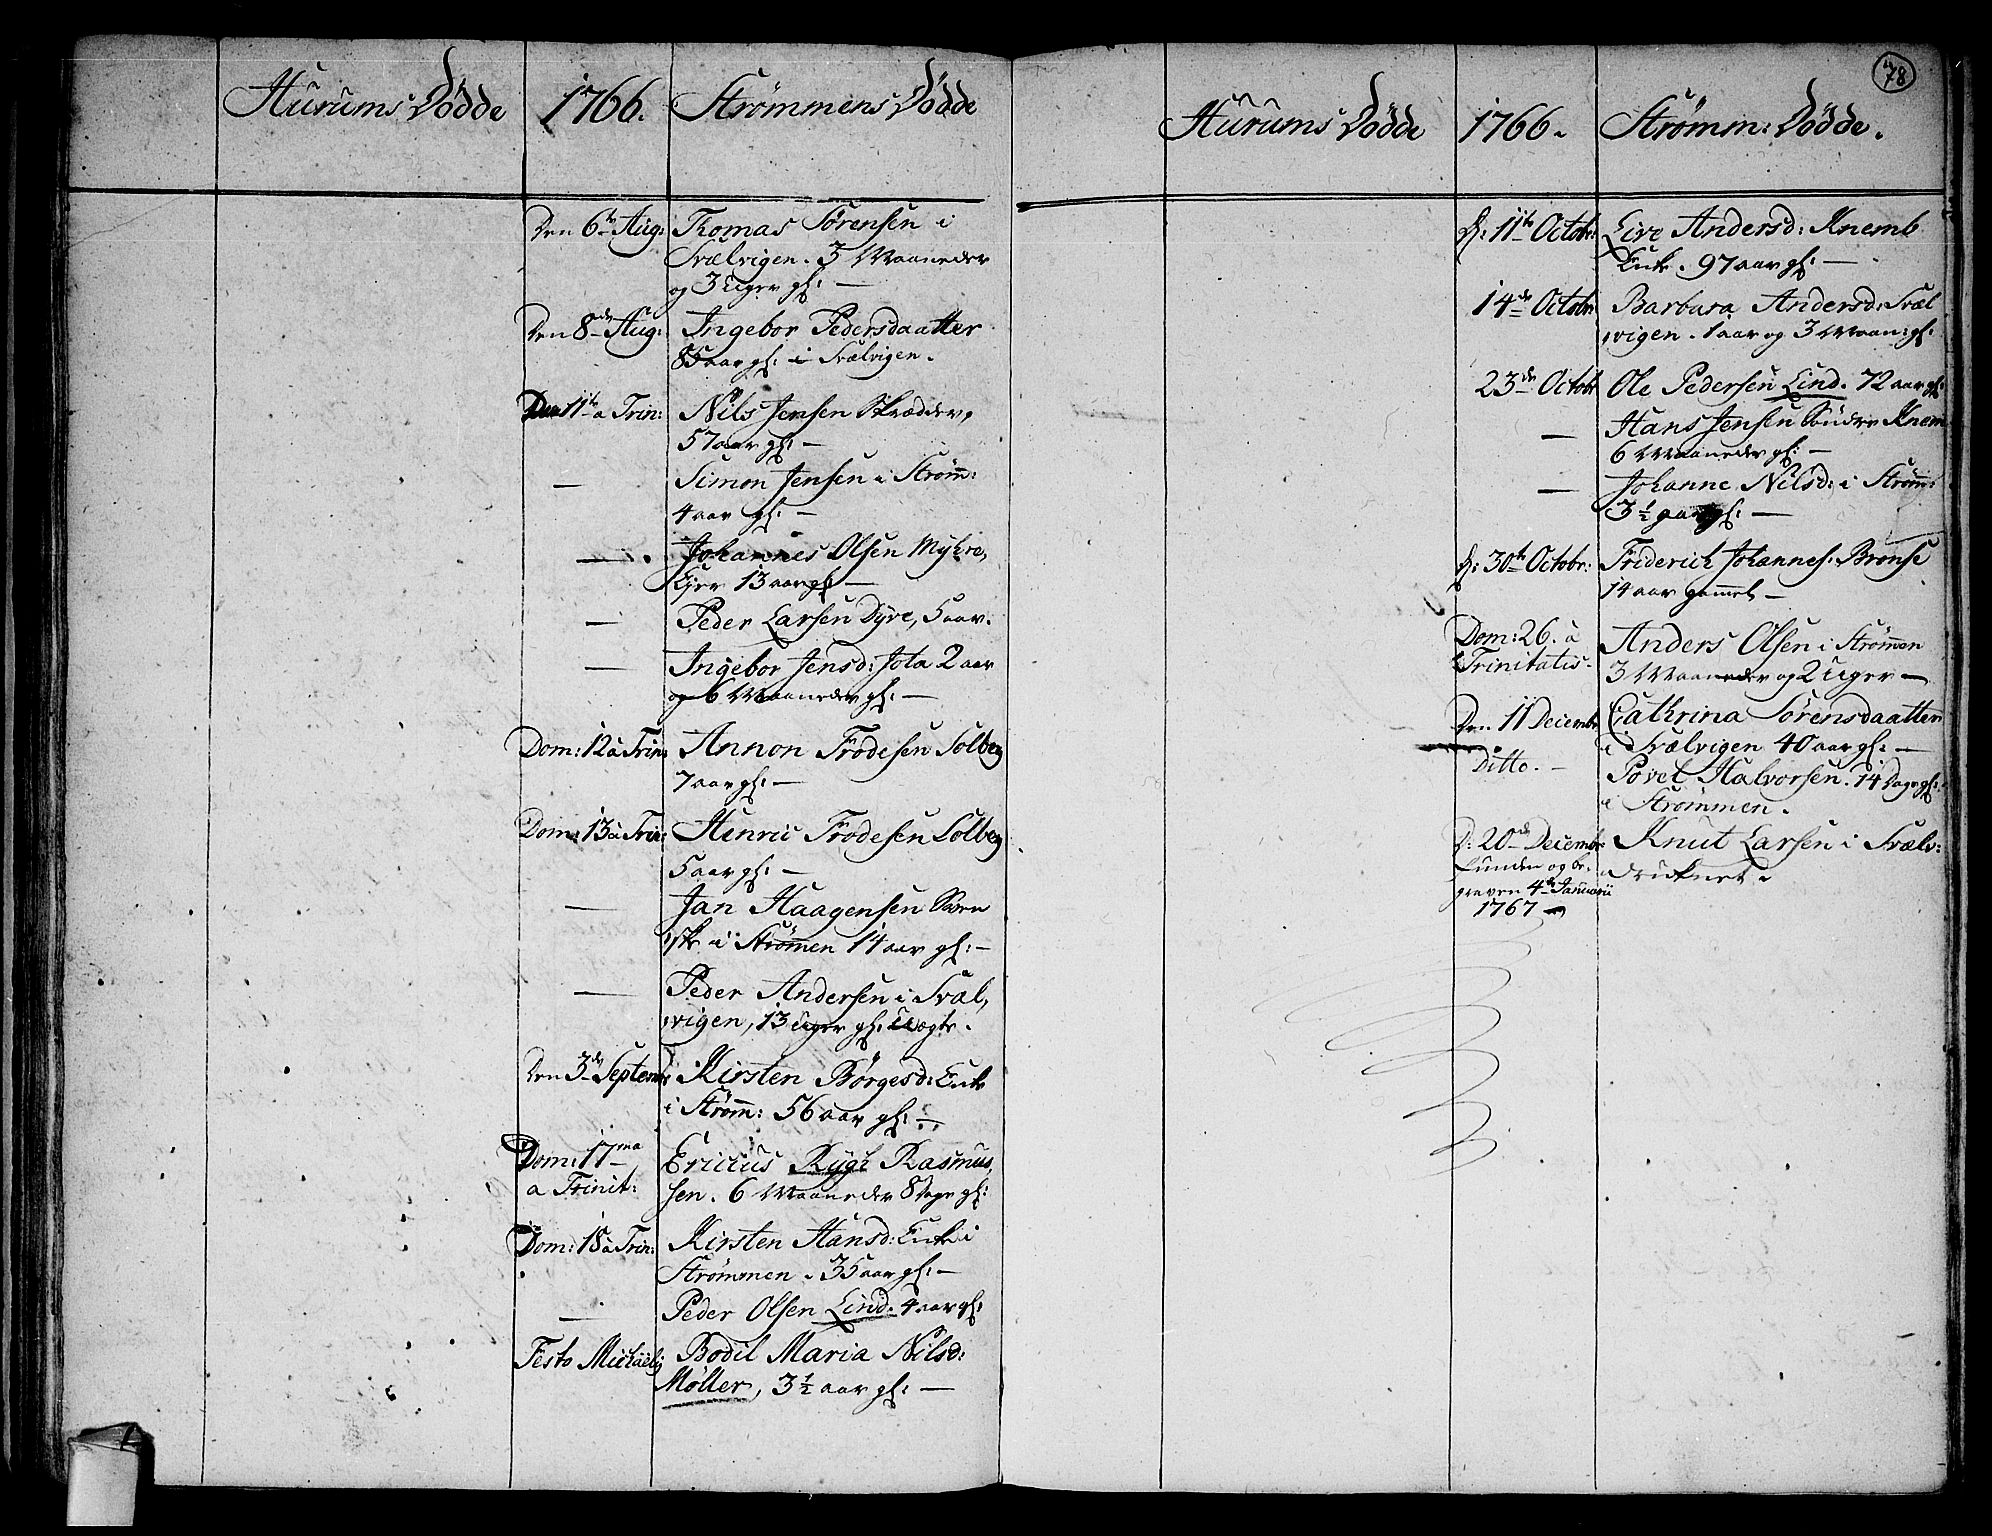 Hurums Dödde 1766. Strømmens Dödde
Den 6te Aug: Thomas Sörensen i
Svælvigen. 3 Maaneder
og 3 Uger gl: —
Den 8de Aug: Ingebor Pedersdaatter
85 aar gl: i Svælvigen.
Den 11te a Trin: Nils Jensen Skrædder,
57 aar gl: —
— Simon Jensen i Strøm:
4 aar gl: —
— Johannes Olsen Myhre,
Ejer 13 aar gl: —
— Peder Larsen Dyre, 5 aar.
— Ingebor Jensd: Jota 2 aar
og 6 Maaneder gl: —
Dom: 12 a Trin: Annon Frodesen Solberg
7 aar gl: —
Dom: 13 a Trin: Henric Frodesen Solberg
5 aar gl: —
— Jan Haagensen
i Strömen 14 aar gl: —
— Peder Andersen i Svæl,
vigen, 13 Uger gl: Uægte.
Den 3de Septembr Kirsten Börgesd: Enke
i Strøm: 56 aar gl: —
Dom: 17ma Ericius Rygh Rasmus,
a Trinit: sen. 6 Maaneder 8 Dage gl:
Dom: 18 a Trin: Kirsten Hansd: Enke i
Strømmen. 35 aar gl: —
— Peder Olsen Lind. 4 aar gl:
Festo Michaelis Bodil Maria Nilsd:
Møller, 3 1/2 aar gl: —
78
Hurums Dödde 1766. Strømm: Dödde.
D: 11te Octobr: Live Andersd: Knemb
Enke. 97 aar gl: —
14de Octobr Barbara Andersd: Svæl
vigen. 1 aar og 3 Maan: gl:
23de Octobr Ole Pedersen Lind. 72 aar gl:
— Hans Jensen Söndre Knem
6 Maaneder gl: —
— Johanne Nilsd: i Strøm:
3 1/2 aar gl: —
D: 30te Octobr: Friderich Johannes: Bronse
14 aar gammel —
Dom: 26. a Anders Olsen i Strømen
Trinitatis — 3 Maaneder og 2 Uger —
Den 11 Decembr Cathrina Sörensdaatter
i Svælvigen 40 aar gl: —
Ditto. — Povel Halvorsen. 14 Dage gl:
i Strømmen.
D: 20de Decembr Knut Larsen i Svælv:
funden og be- druknet.
graven 4de Januarii
1767 —